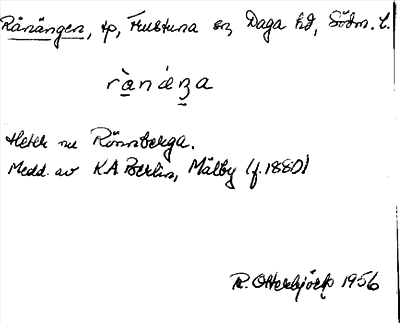 Rånängen, tp, Frustuna sn, Daga hd, Södm. l.
rànáŋa
Heter nu Rönnberga.
Medd. av K.A. Berlin, Mälby (f. 1880)
R. Otterbjörk 1956